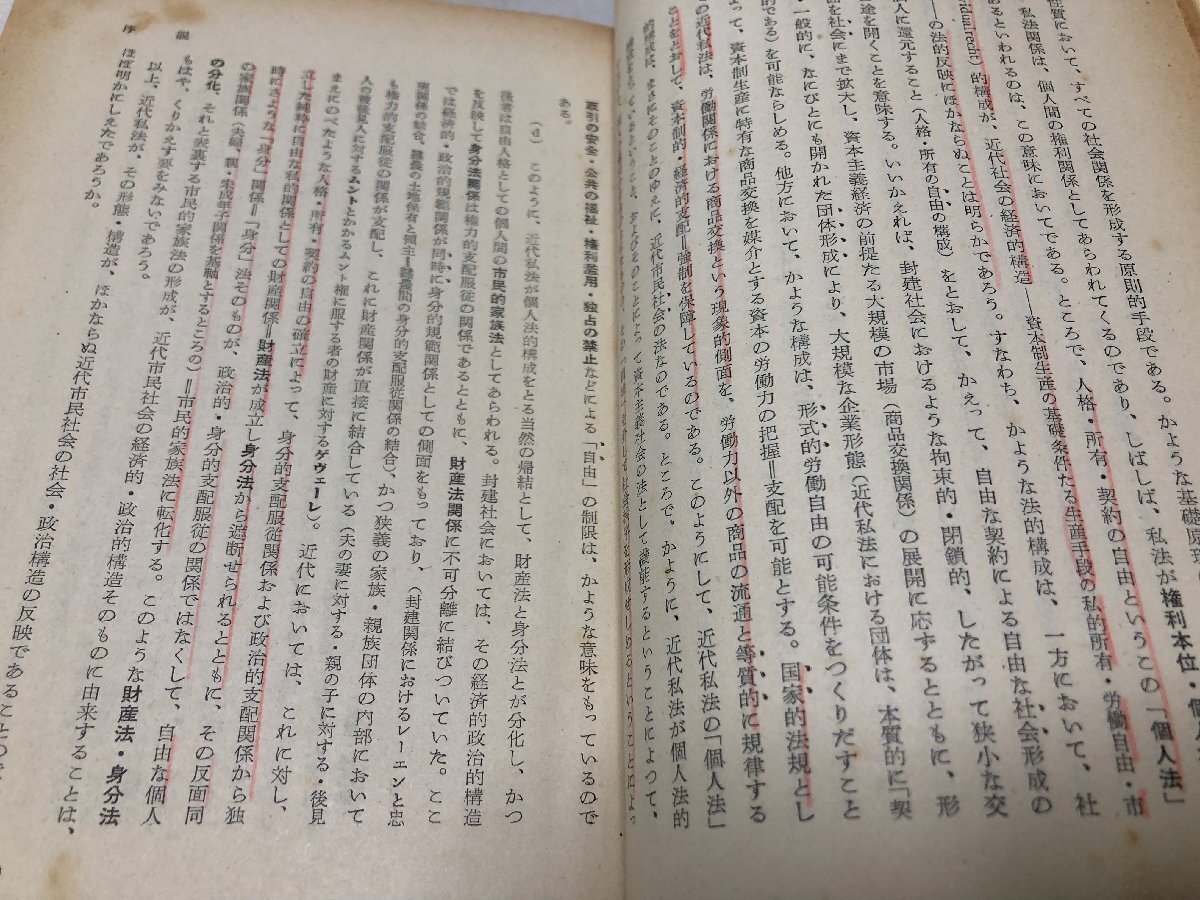 性質において、すべての社会関係を形成する原則的手段である。かような基礎原
私法関係は、個人間の権利関係としてあらわれてくるのであり、しばしば、私法が権利本位・個人
であるといわれるのは、この意味においてである。ところで、人格・所有・契約の自由というこの「個人法」
的構成が、近代社会の経済的構造――資本制生産の基礎条件たる生産手段の私的所有・労働自由・市
の法的反映にほかならぬことは明らかであろう。すなわち、かような法的構成は、一方において、社
人に還元すること(人格・所有の自由の構成)をとおして、かえって、自由な契約による自由な社会形成の
途を開くことを意味する。いいかえれば、封建社会におけるような拘束的・閉鎖的、したがって狭小な交
を社会にまで拡大し、資本主義経済の前提たる大規模の市場(商品交換関係)の展開に応ずるとともに、形
一般的に、なにびとにも開かれた団体形成により、大規模な企業形態(近代私法における団体は、本質的に「契
的である)を可能ならしめる。他方において、かような構成は、形式的労働自由の可能条件をつくりだすこと
って、資本制生産に特有な商品交換を媒介とする資本の労働力の把握=支配を可能とする。国家的法規とし
の近代私法は、労働関係における商品交換という現象的側面を、労働力以外の商品の流通と等質的に規律する
ことをとおして、資本制的・経済的支配=強制を保障しているのである。このようにして、近代私法の「個人法」
的構成は、まさにそのことのゆえに、近代市民社会の法なのである。ところで、かように、近代私法が個人法的
およびそのことによって資本主義社会の法として機能するということによって、
取引の安全・公共の福祉・権利濫用・独占の禁止などによる「自由」の制限は、かような意味をもっているので
ある。
このように、近代私法が個人法的構成をとる当然の帰結として、財産法と身分法とが分化し、かつ
後者は自由人格としての個人間の市民的家族法としてあらわれる。封建社会においては、その経済的政治的構造
を反映して身分法関係は権力的支配服従の関係であるとともに、財産法関係に不可分離に結びついていた。ここ
では経済的・政治的規範関係が同時に身分的規範関係としての側面をもっており、(封建関係におけるレーエンと忠
誠関係の結合、隷農の土地保有と領主・隷農間の身分的支配服従関係の結合)、かつ狭義の家族・親族団体の内部において
も権力的支配服従の関係が支配し、これに財産関係が直接に結合している(夫の妻に対する・親の子に対する・後見
人の被後見人に対するムントとかかるムント権に服する者の財産に対するゲヴェーレ)。近代においては、これに対し、
まえにのべたような人格・所有・契約の自由の確立によって、身分的支配服従関係および政治的支配関係から独
立した純粋に自由な私的関係としての財産関係=財産法が成立し身分法から遮断せられるとともに、その反面同
時にさような「身分」関係=「身分」法そのものが、政治的・身分的支配服従の関係ではなくして、自由な個人
の家族関係(夫婦、親・未成年子関係を基軸とするところの)=市民的家族法に転化する。このような財産法・身分法
の分化、それと表裏する市民的家族法の形成が、近代市民社会の経済的・政治的構造そのものに由来することは、
もはや、くりかえす要をみないであろう。
以上、近代私法が、その形態・構造が、ほかならぬ近代市民社会の社会・政治構造の反映であることの
ほぼ明かにしえたであろうか。
序説